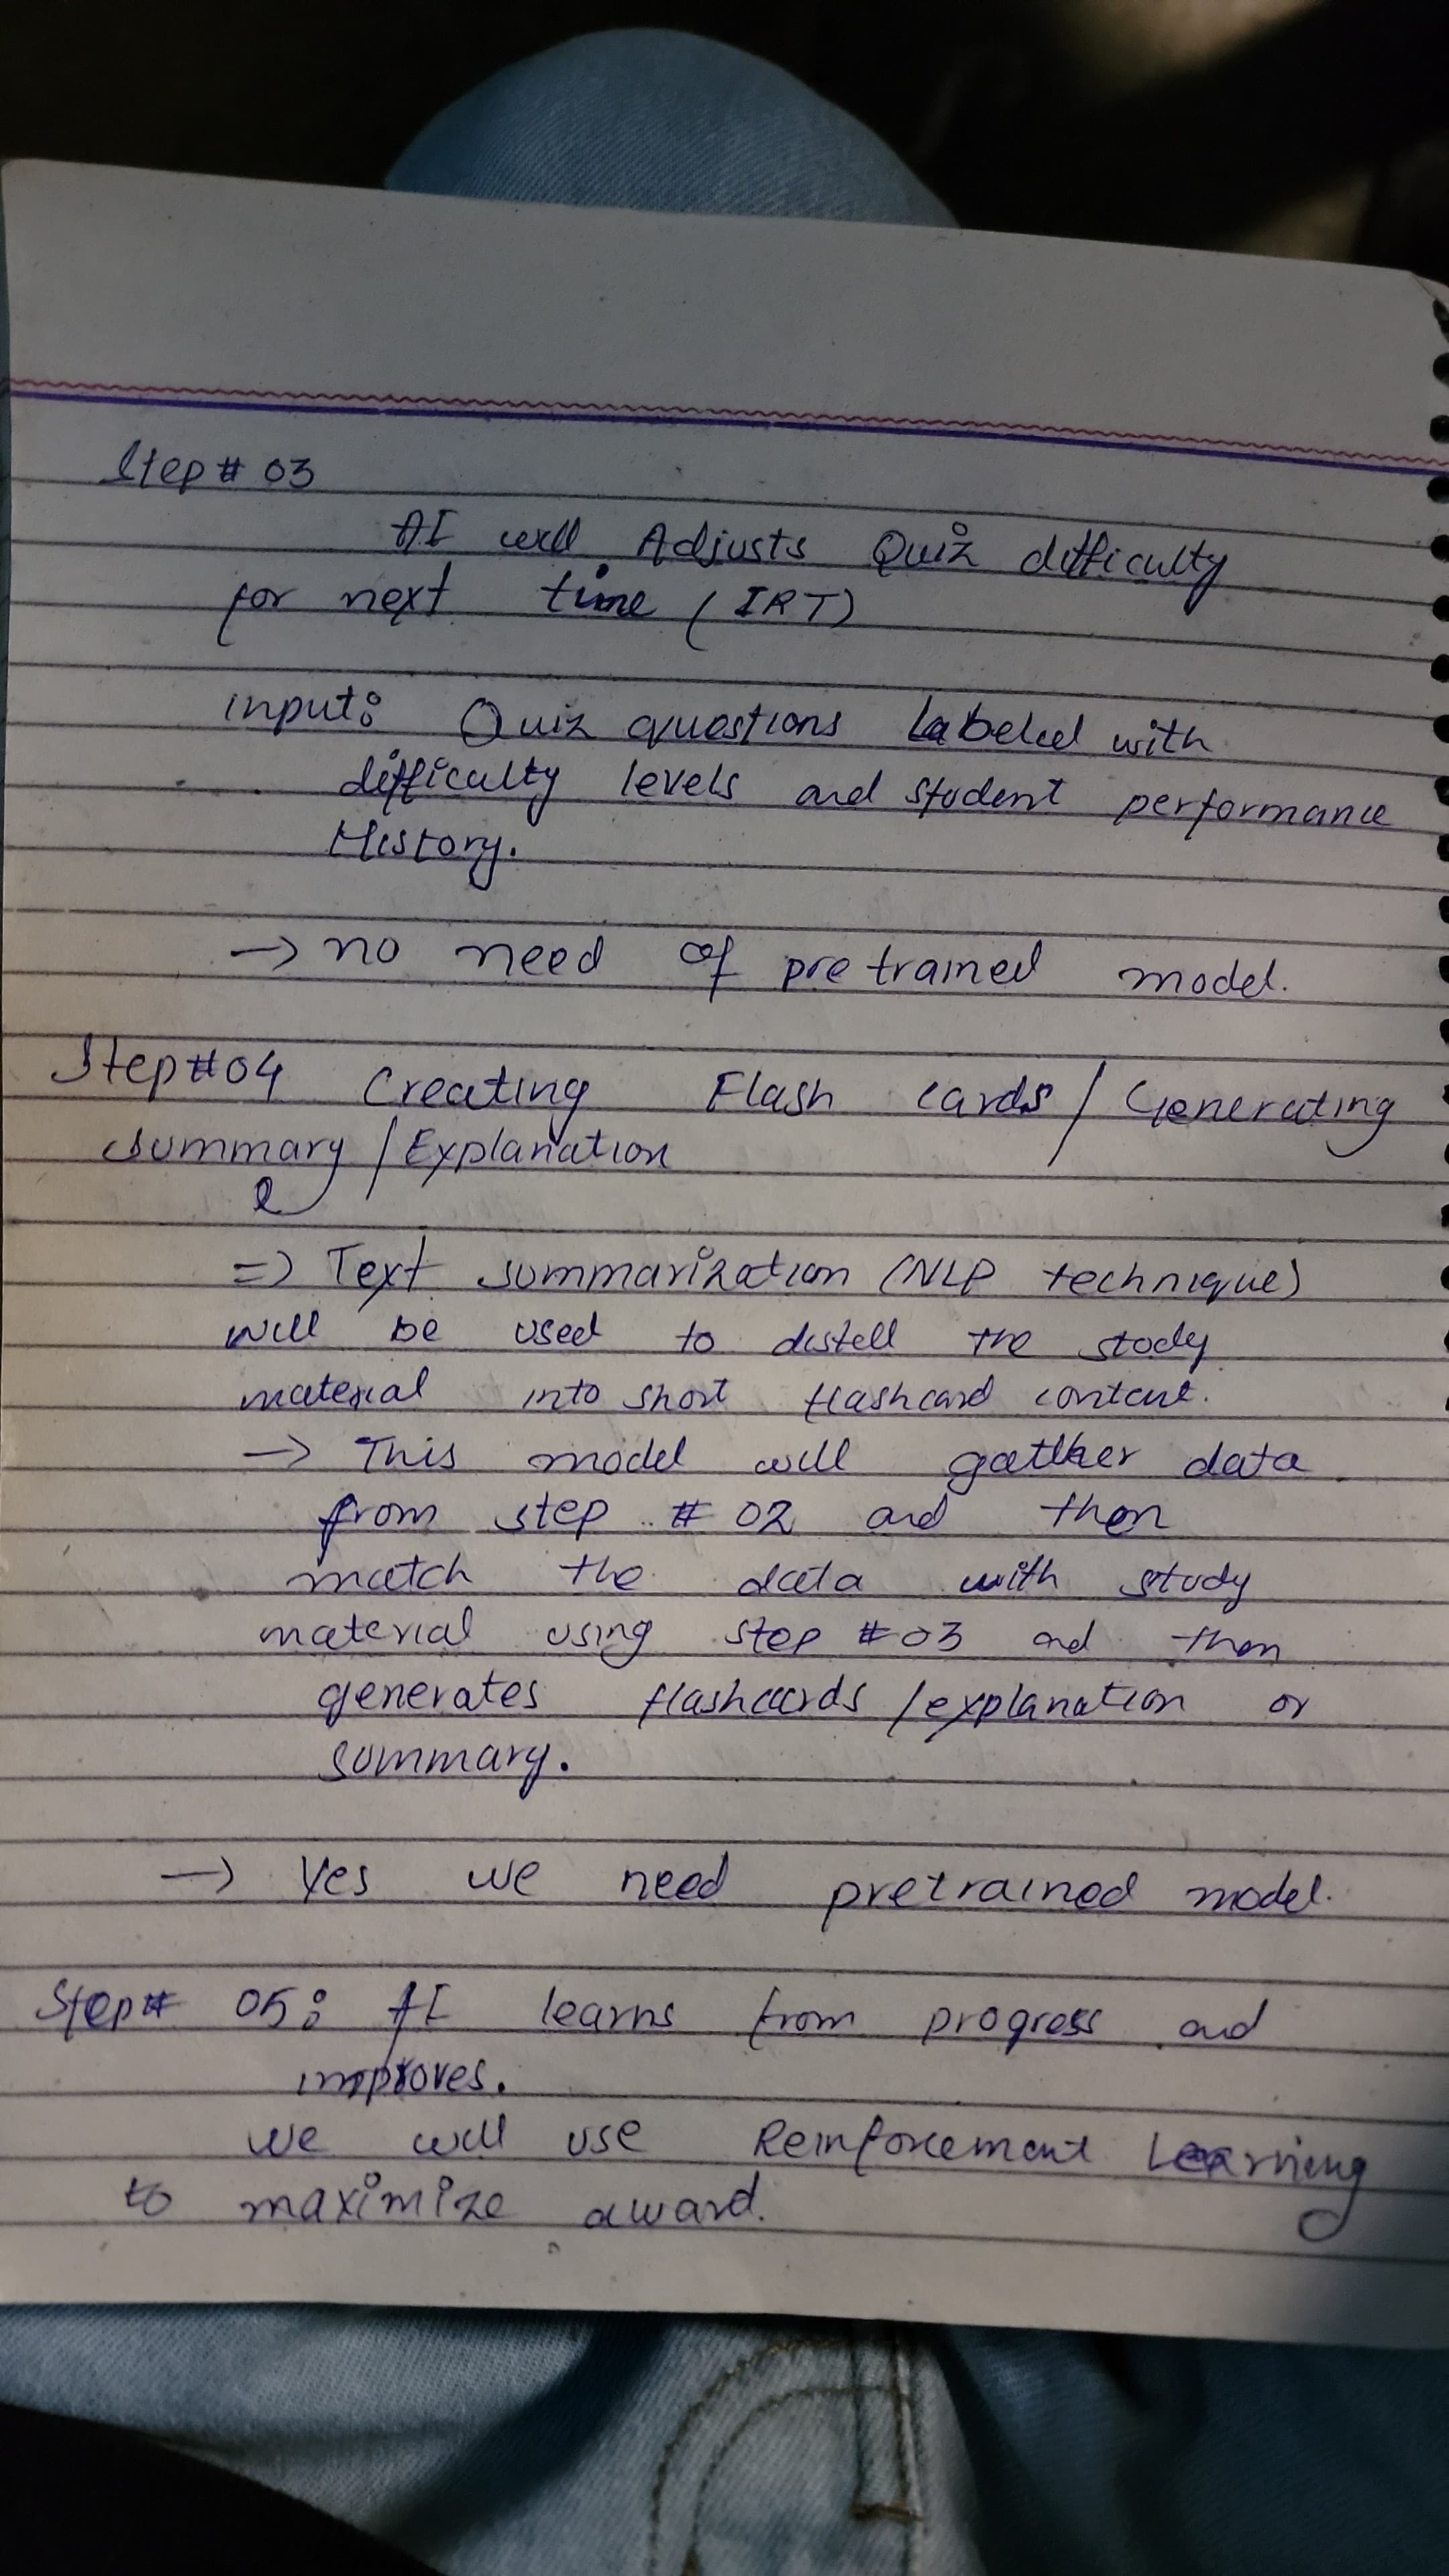 Step # 03
AI will Adjusts Quiz difficulty
for next time (IRT)
input: Quiz questions Labeled with
difficulty levels and student performance
History.
→ no need of pretrained model.
Step#04 Creating Flash cards / Generating
summary / Explanation
=> Text summarization (NLP technique)
will be used to distell the study
material into short flashcard content.
→ This model will gatther data
from step # 02 and then
match the data with study
material using step # 03 and then
generates flashcards / explanation or
summary.
→ Yes we need pretrained model.
Step# 05: AI learns from progress and
improves.
we will use Reinforcement Learning
to maximize award.